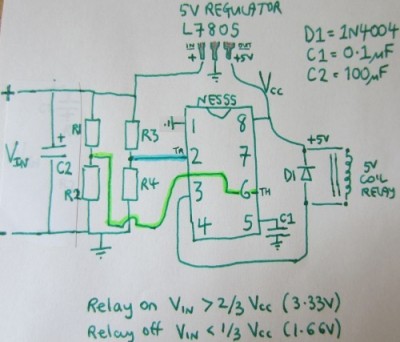 5V REGULATOR
L7805
IN
+
+5V
D1 = 1N4004
C1 = 0.1μF
C2 = 100μF
VCC
+
NE555
R1
R3
1
8
+
VIN
C2
TR
2
7
+5V
R2
R4
3
6
TH
D1
5V
COIL
RELAY
4
5
C1
-
Relay on VIN > 2/3 Vcc (3.33V)
Relay off VIN < 1/3 Vcc (1.66V)